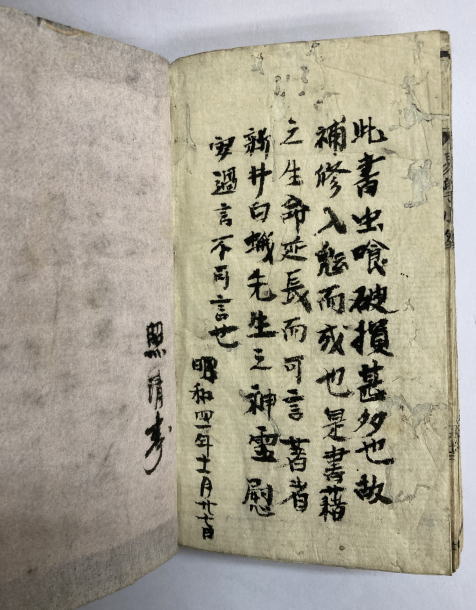 此書虫喰破損甚多也故
補修入魂而成也是書籍
之生命延長而可言著者
新井白蛾先生之神霊慰
過言不可言也
昭和四一年十一月廿七日
清